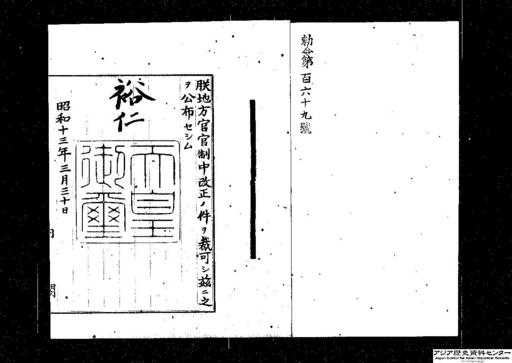 勅令第百六十九號
朕地方官官制中改正ノ件ヲ裁可シ茲ニ之
ヲ公布セシム
裕仁
天皇御璽
昭和十三年三月三十日
内閣
アジア歴史資料センター
Japan Center for Asian Historical Records